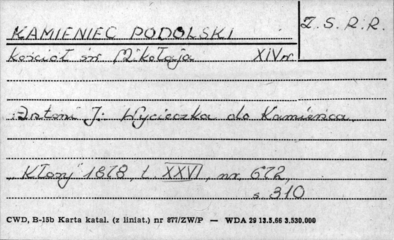 KAMIENIEC PODOLSKI
Z. S. R. R.
Kościół św. Mikołaja XIV w.
Antoni J: Wycieczka do Kamieńca.
Kłosy 1878 t. XXVI, nr. 672
s. 310
CWD, B-15b Karta katal. (z liniat.) nr 877/ZW/P — WDA 29 12.5.66 3.530.000